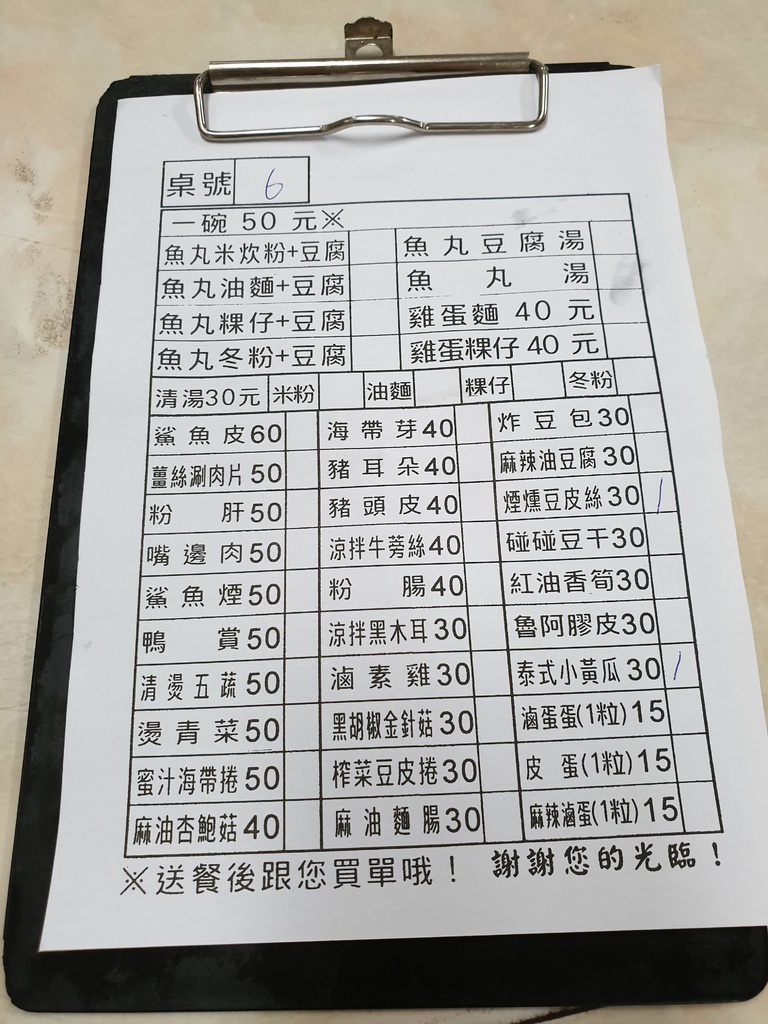 桌號 6
一碗 50 元※
魚丸米炊粉+豆腐 魚丸豆腐湯
魚丸油麵+豆腐 魚丸湯
魚丸粿仔+豆腐 雞蛋麵 40 元
魚丸冬粉+豆腐 雞蛋粿仔 40 元
清湯30元 米粉 油麵 粿仔 冬粉
鯊魚皮60 海帶芽40 炸豆包30
薑絲涮肉片50 豬耳朵40 麻辣油豆腐30
粉肝50 豬頭皮40 煙燻豆皮絲30 1
嘴邊肉50 涼拌牛蒡絲40 碰碰豆干30
鯊魚煙50 粉腸40 紅油香筍30
鴨賞50 涼拌黑木耳30 魯阿膠皮30
清燙五蔬50 滷素雞30 泰式小黃瓜30 1
燙青菜50 黑胡椒金針菇30 滷蛋蛋(1粒)15
蜜汁海帶捲50 榨菜豆皮捲30 皮蛋(1粒)15
麻油杏鮑菇40 麻油麵腸30 麻辣滷蛋(1粒)15
※送餐後跟您買單哦！ 謝謝您的光臨！